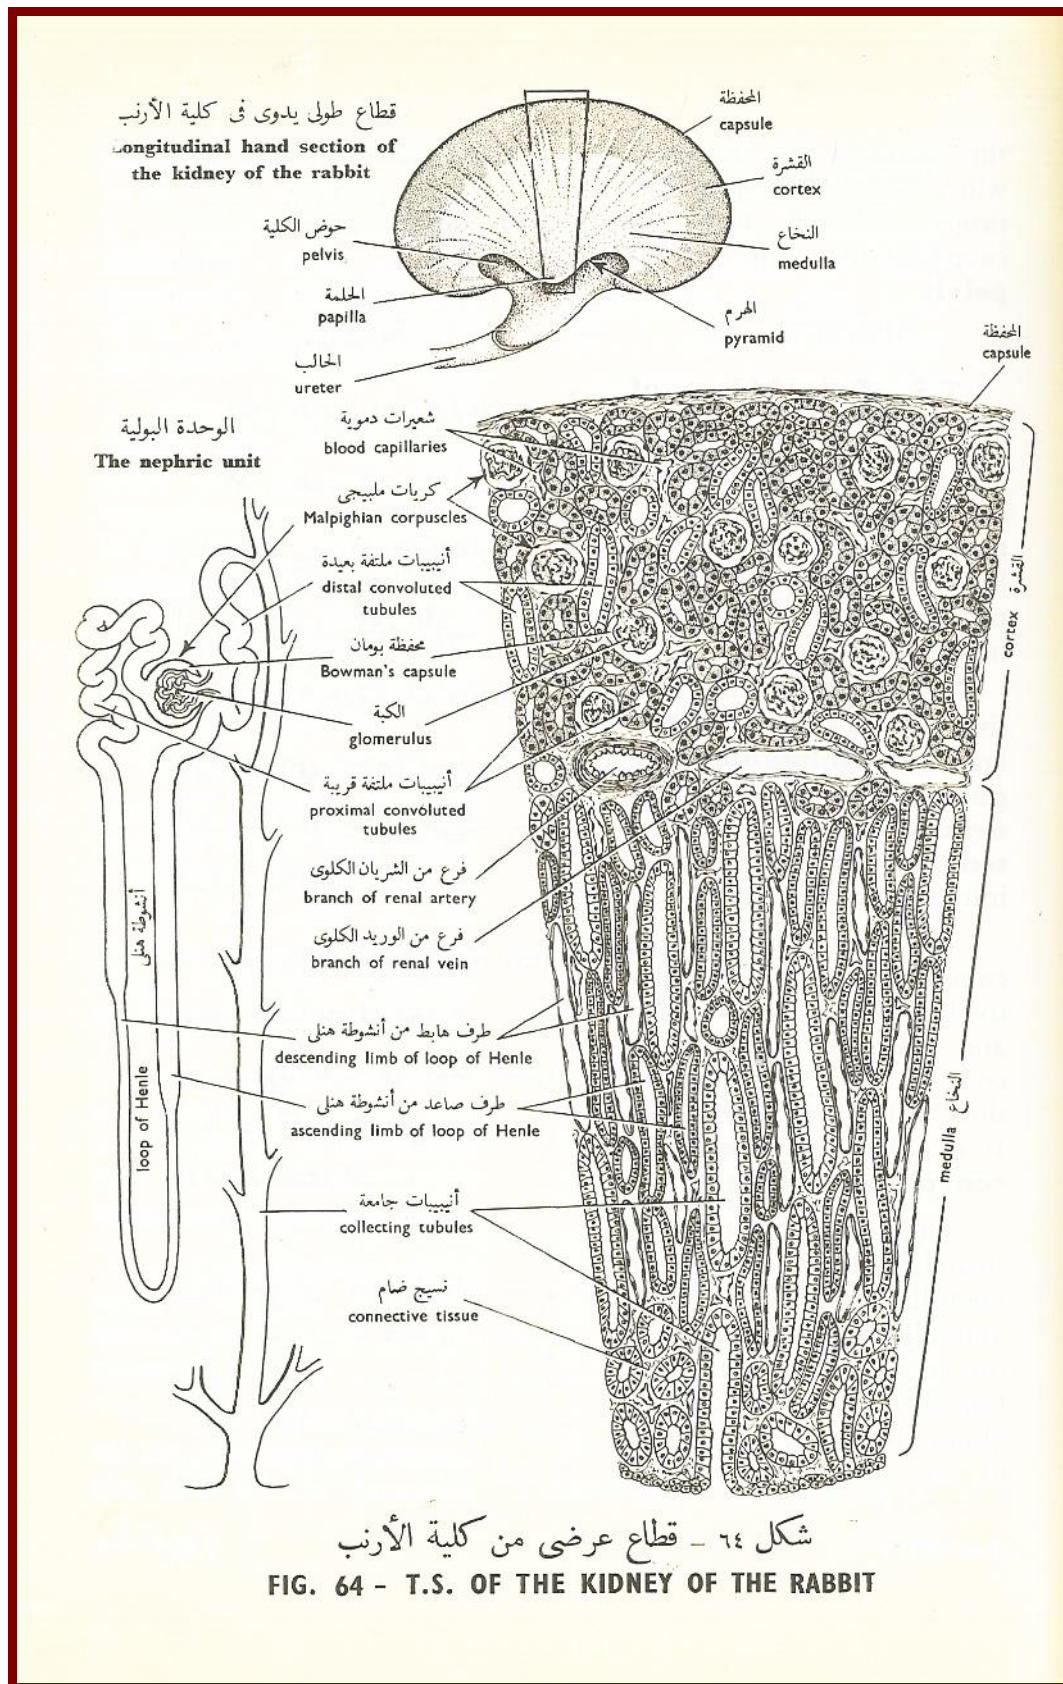 قطاع طولى يدوى فى كلية الأرنب
Longitudinal hand section of
the kidney of the rabbit
المحفظة
capsule
القشرة
cortex
النخاع
medulla
الهرم
pyramid
حوض الكلية
pelvis
الحلمة
papilla
الحالب
ureter
المحفظة
capsule
الوحدة البولية
The nephric unit
شعيرات دموية
blood capillaries
كريات ملبيجى
Malpighian corpuscles
أنيبيبات ملتفة بعيدة
distal convoluted
tubules
محفظة بومان
Bowman's capsule
الكبة
glomerulus
أنيبيبات ملتفة قريبة
proximal convoluted
tubules
فرع من الشريان الكلوى
branch of renal artery
فرع من الوريد الكلوى
branch of renal vein
طرف هابط من أنشوطة هنلى
descending limb of loop of Henle
طرف صاعد من أنشوطة هنلى
ascending limb of loop of Henle
أنيبيبات جامعة
collecting tubules
نسيج ضام
connective tissue
أنشوطة هنلى
loop of Henle
القشرة
cortex
النخاع
medulla
شكل ٦٤ - قطاع عرضى من كلية الأرنب
FIG. 64 - T.S. OF THE KIDNEY OF THE RABBIT